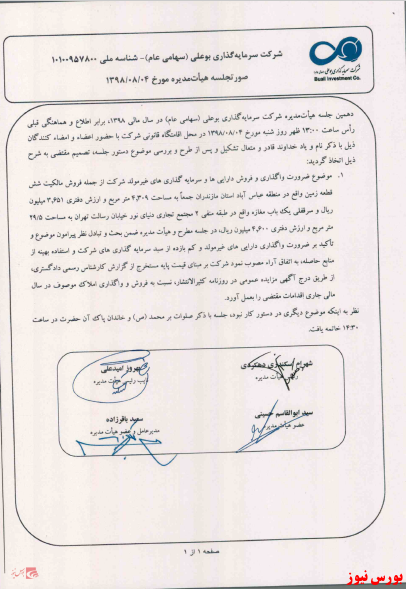 شرکت سرمایه‌گذاری بوعلی (سهامی عام)- شناسه ملی ۱۰۱۰۰۹۵۷۸۰۰
صورتجلسه هیأت‌مدیره مورخ ۱۳۹۸/۰۸/۰۴
شرکت سرمایه گذاری بوعلی (سهامی عام)
Buali Investment Co.
دهمین جلسه هیأت‌مدیره شرکت سرمایه‌گذاری بوعلی (سهامی عام) در سال مالی ۱۳۹۸، برابر اطلاع و هماهنگی قبلی
رأس ساعت ۱۳:۰۰ ظهر روز شنبه مورخ ۱۳۹۸/۰۸/۰۴ در محل اقامتگاه قانونی شرکت با حضور اعضاء و امضاء کنندگان
ذیل با ذکر نام و یاد خداوند قادر و متعال تشکیل و پس از طرح و بررسی موضوع دستور جلسه، تصمیم مقتضی به شرح
ذیل اتخاذ گردید:
۱. موضوع ضرورت واگذاری و فروش دارایی ها و سرمایه گذاری های غیرمولد شرکت از جمله فروش مالکیت شش
قطعه زمین واقع در منطقه عباس آباد استان مازندران جمعاً به مساحت ۴,۳۰۹ متر مربع و ارزش دفتری ۳,۶۵۱ میلیون
ریال و سرقفلی یک باب مغازه واقع در طبقه منفی ۲ مجتمع تجاری دنیای نور خیابان رسالت تهران به مساحت ۲۹/۵
متر مربع و ارزش دفتری ۴,۶۰۰ میلیون ریال، در جلسه مطرح و هیأت مدیره ضمن بحث و تبادل نظر پیرامون موضوع و
تأکید بر ضرورت واگذاری دارایی های غیرمولد و کم بازده از سبد سرمایه گذاری های شرکت و استفاده بهینه از
منابع حاصله، به اتفاق آراء مصوب نمود شرکت بر مبنای قیمت پایه مستخرج از گزارش کارشناس رسمی دادگستری،
از طریق درج آگهی مزایده عمومی در روزنامه کثیرالانتشار، نسبت به فروش و واگذاری املاک موصوف در سال
مالی جاری اقدامات مقتضی را بعمل آورد.
نظر به اینکه موضوع دیگری در دستور کار نبود، جلسه با ذکر صلوات بر محمد (ص) و خاندان پاک آن حضرت در ساعت
۱۴:۳۰ خاتمه یافت.
شهرام اسکندری دهکردی
رئیس هیأت مدیره
بهروز امیدعلی
نایب رئیس هیأت مدیره
سید ابوالقاسم حسینی
عضو هیأت مدیره
سعید باقرزاده
مدیرعامل و عضو هیأت مدیره
صفحه ۱ از ۱
بورس نیوز